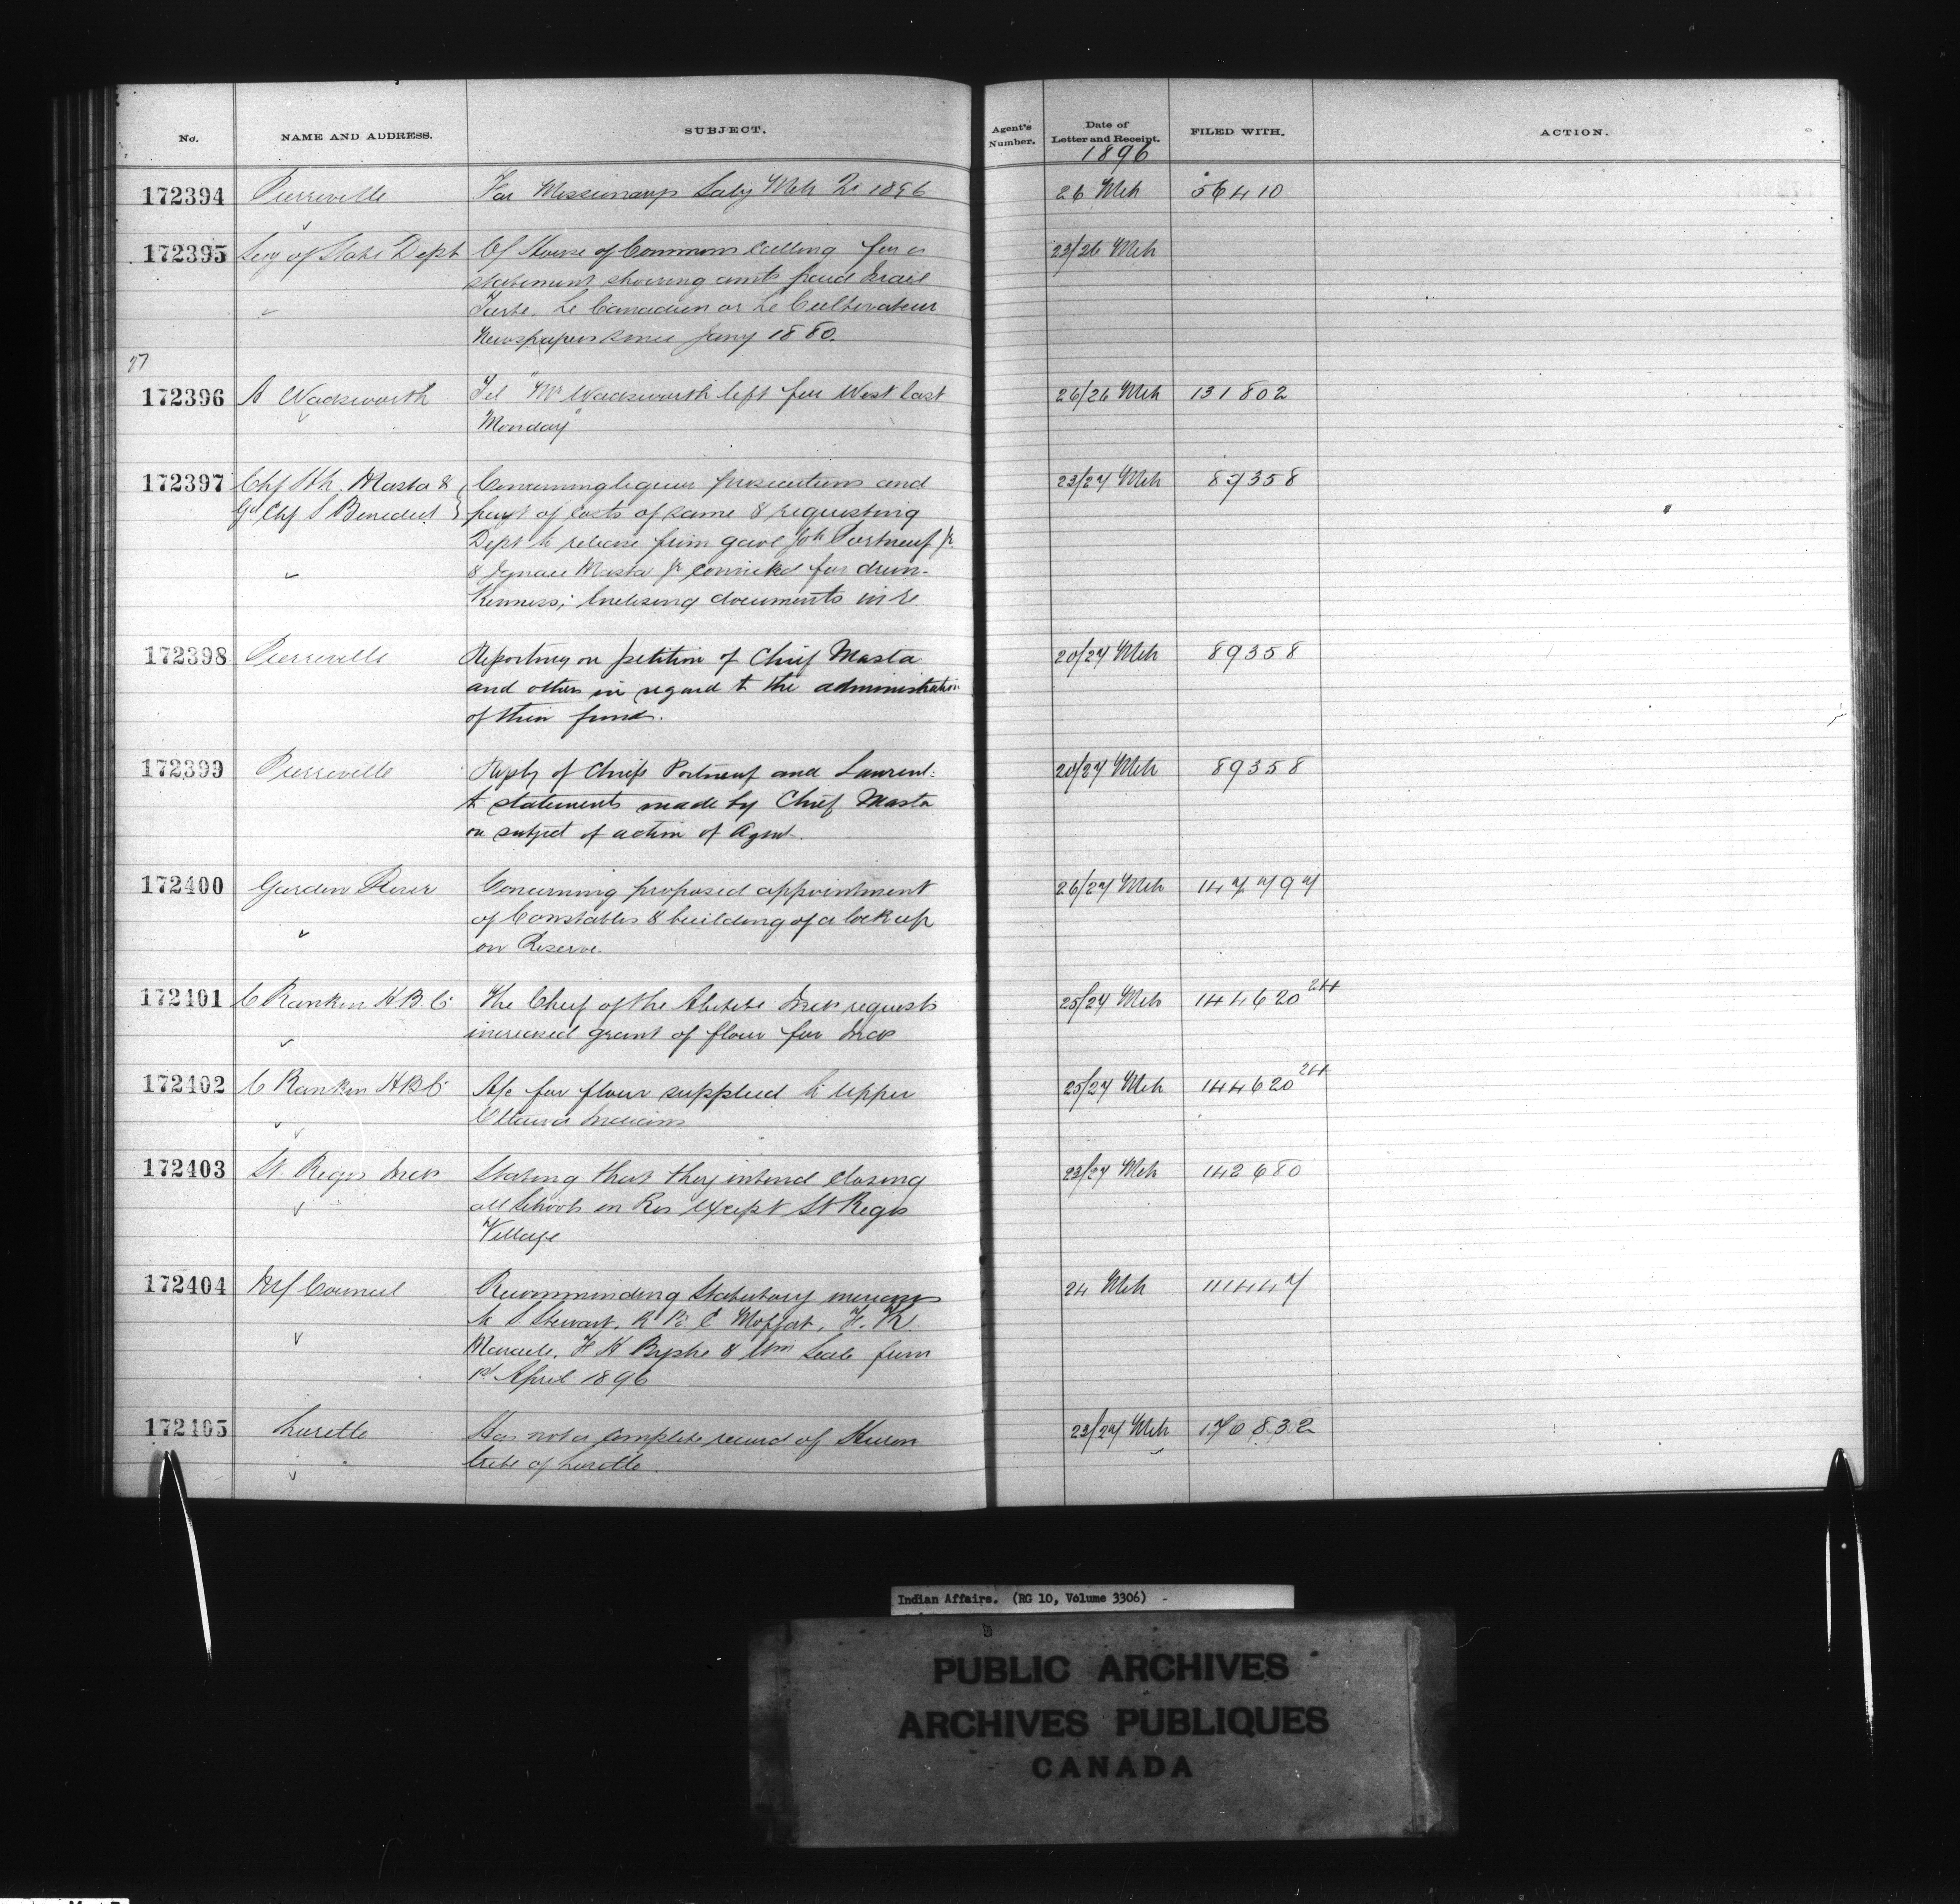 No. NAME AND ADDRESS. SUBJECT. Agent's Number. Date of Letter and Receipt. FILED WITH. ACTION.
1896
172394 Pierreville For Missionary's Saly Mch Qr 1896 26 Mch 56410
172395 Secy of State Dept Of House of Commons calling for a 23/26 Mch
statement showing amts paid Israel
Tarte, Le Canadien or Le Cultivateur
Newspapers since Jany 1880.
27
172396 A Wadsworth Tel "Mr Wadsworth left for West last 26/26 Mch 131802
Monday"
172397 Chf Masta & Concerning liquor prosecutions and 23/27 Mch 89358
Gd Chf S Benedict payt of costs of same & requesting
Dept to release from gaol Joh Portneuf Jr.
& Ignace Masta Jr convicted for drun-
kenness; Enclosing documents in re
172398 Pierreville Reporting on petition of Chief Masta 20/27 Mch 89358
and others in regard to the administration
of their funds.
172399 Pierreville Reply of Chiefs Portneuf and Laurent 20/27 Mch 89358
to statements made by Chief Masta
on subject of action of Agent.
172400 Garden River Concerning proposed appointment 26/27 Mch 147797
of Constables & building of a lock up
on Reserve.
172401 C Rankin H B Co The Chief of the Abitibi Inds requests 25/27 Mch 144620 2H
increased grant of flour for Inds
172402 C Rankin H B Co A/c for flour supplied to Upper 25/27 Mch 144620 2H
Ottawa Indians
172403 St. Regis Inds Stating that they intend closing 23/27 Mch 142680
all Schools on Res except St Regis
Village
172404 Council Recommending Statutory increase 24 Mch 111447
to S. Stewart, R B E Moffat, F. R.
Maracle, F H Byshe & Wm Seale from
1st April 1896
172405 Lorette Has not a complete record of Huron 23/27 Mch 170832
tribe of Lorette
Indian Affairs. (RG 10, Volume 3306)
PUBLIC ARCHIVES
ARCHIVES PUBLIQUES
CANADA